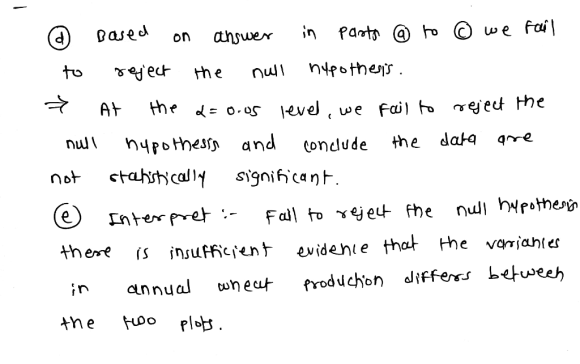 (d) Based on answer in parts (a) to (c) we fail
to reject the null hypothesis.
⇒ At the α = 0.05 level, we fail to reject the
null hypothesis and conclude the data are
not statistically significant.
(e) Interpret :- Fail to reject the null hypothesis
there is insufficient evidence that the variances
in annual wheat production differs between
the two plots.